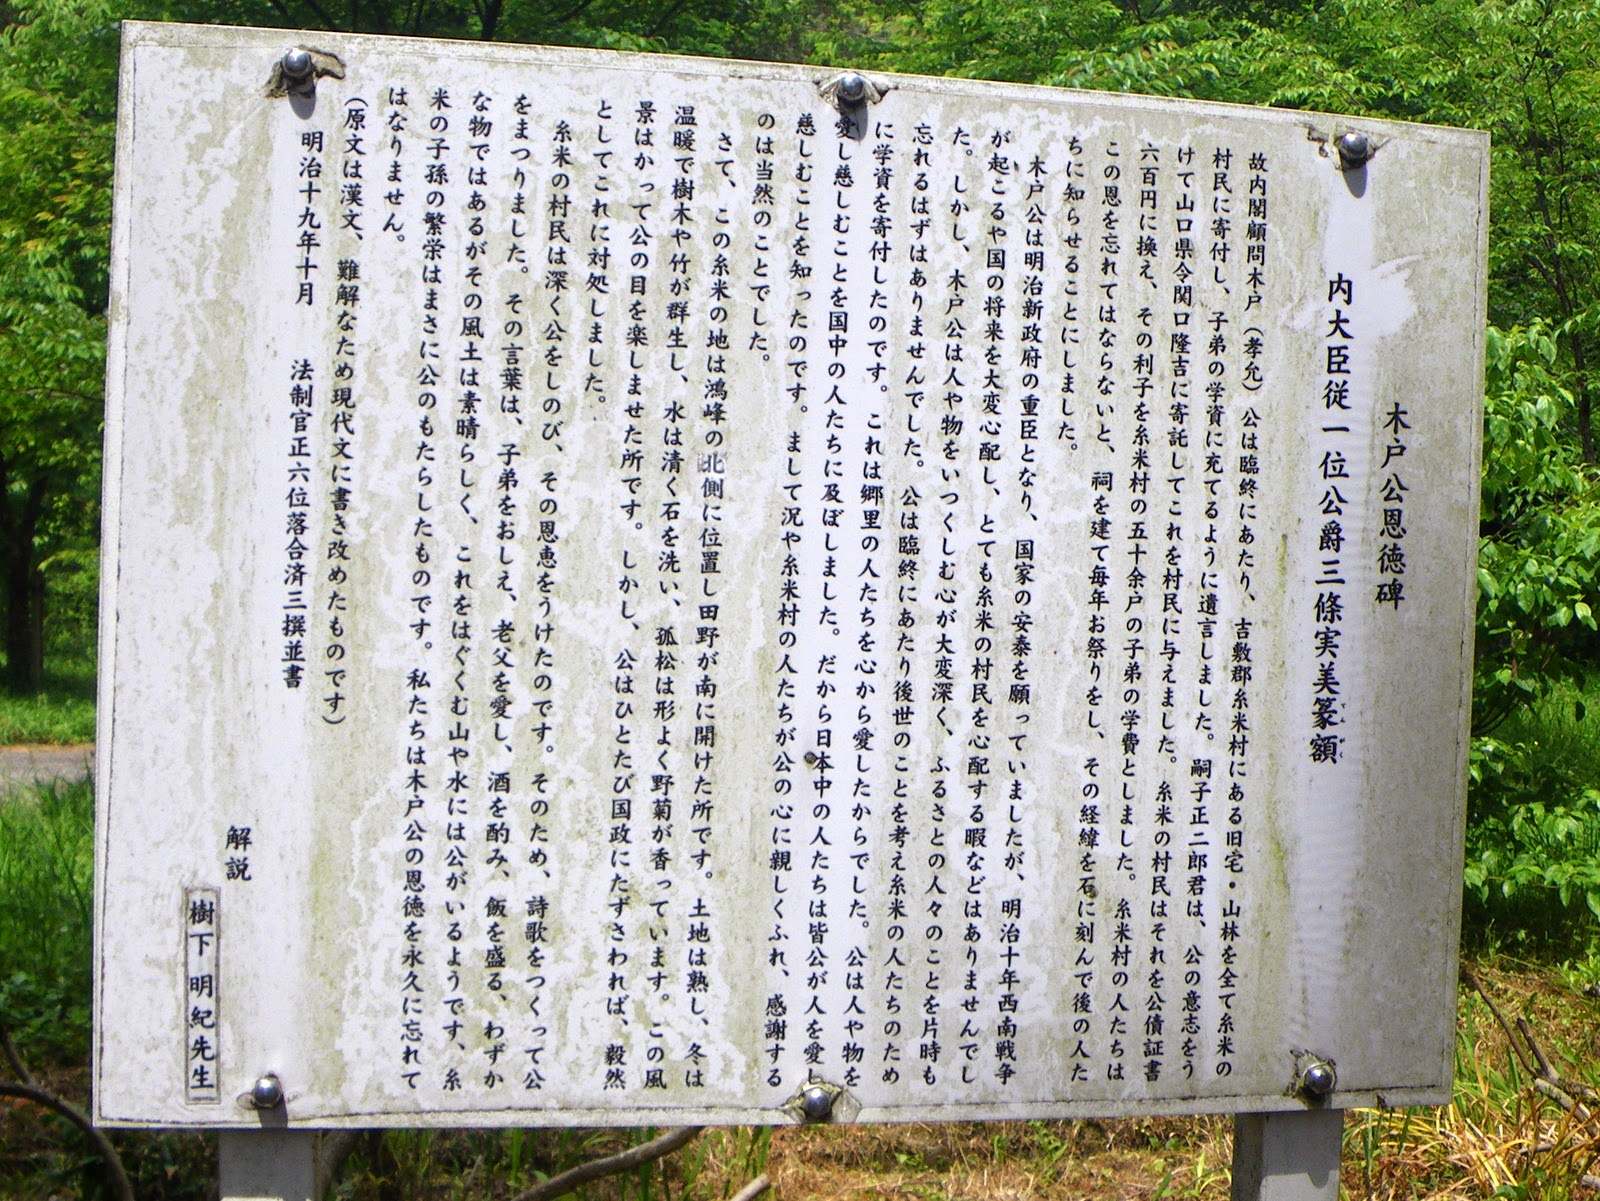 木戸公恩徳碑
内大臣従一位公爵三條実美篆額
てんがく
故内閣顧問木戸（孝允）公は臨終にあたり、吉敷郡糸米村にある旧宅・山林を全て糸米の
村民に寄付し、子弟の学資に充てるように遺言しました。嗣子正二郎君は、公の意志をう
けて山口県令関口隆吉に寄託してこれを村民に与えました。糸米の村民はそれを公債証書
六百円に換え、その利子を糸米村の五十余戸の子弟の学費としました。糸米村の人たちは
この恩を忘れてはならないと、祠を建て毎年お祭りをし、その経緯を石に刻んで後の人た
ちに知らせることにしました。
木戸公は明治新政府の重臣となり、国家の安泰を願っていましたが、明治十年西南戦争
が起こるや国の将来を大変心配し、とても糸米の村民を心配する暇などはありませんでし
た。しかし、木戸公は人や物をいつくしむ心が大変深く、ふるさとの人々のことを片時も
忘れるはずはありませんでした。公は臨終にあたり後世のことを考え糸米の人たちのため
に学資を寄付したのです。これは郷里の人たちを心から愛したからでした。公は人や物を
愛し慈しむことを国中の人たちに及ぼしました。だから日本中の人たちは皆公が人を愛し
慈しむことを知ったのです。まして況や糸米村の人たちが公の心に親しくふれ、感謝する
のは当然のことでした。
さて、この糸米の地は鴻峰の北側に位置し田野が南に開けた所です。土地は熟し、冬は
温暖で樹木や竹が群生し、水は清く石を洗い、孤松は形よく野菊が香っています。この風
景はかって公の目を楽しませた所です。しかし、公はひとたび国政にたずさわれば、毅然
としてこれに対処しました。
糸米の村民は深く公をしのび、その恩恵をうけたのです。そのため、詩歌をつくって公
をまつりました。その言葉は、子弟をおしえ、老父を愛し、酒を酌み、飯を盛る、わずか
な物ではあるがその風土は素晴らしく、これをはぐくむ山や水には公がいるようです、糸
米の子孫の繁栄はまさに公のもたらしたものです。私たちは木戸公の恩徳を永久に忘れて
はなりません。
（原文は漢文、難解なため現代文に書き改めたものです）
明治十九年十月　法制官正六位落合済三撰並書
解説
樹下明紀先生